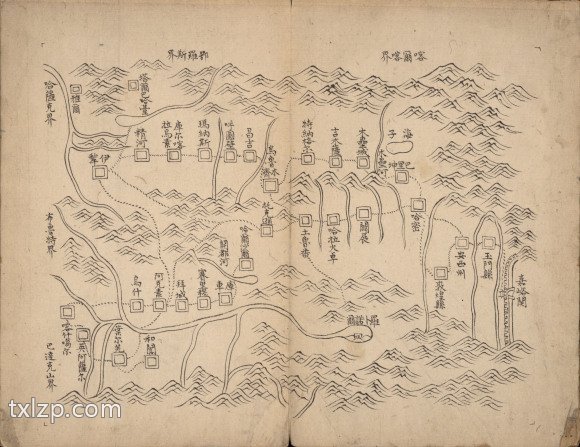 喀爾喀界
鄂羅斯界
海子
巴里坤
木壘河
木壘城
特納格尔
烏魯木齊
昌吉
呼圖壁
瑪納斯
庫尔喀拉烏素
精河
塔爾巴哈臺
雅爾
哈薩克界
伊犂
嘉峪關
玉門縣
安西州
敦煌縣
哈密
闢展
哈拉火卓
土魯番
開都河
布魯特界
羅卜諾爾
庫車
賽里穆
拜城
阿克蘇
烏什
和闐
葉尔羌
英阿薩尔
喀什噶尔
巴達克山界
txlzp.com